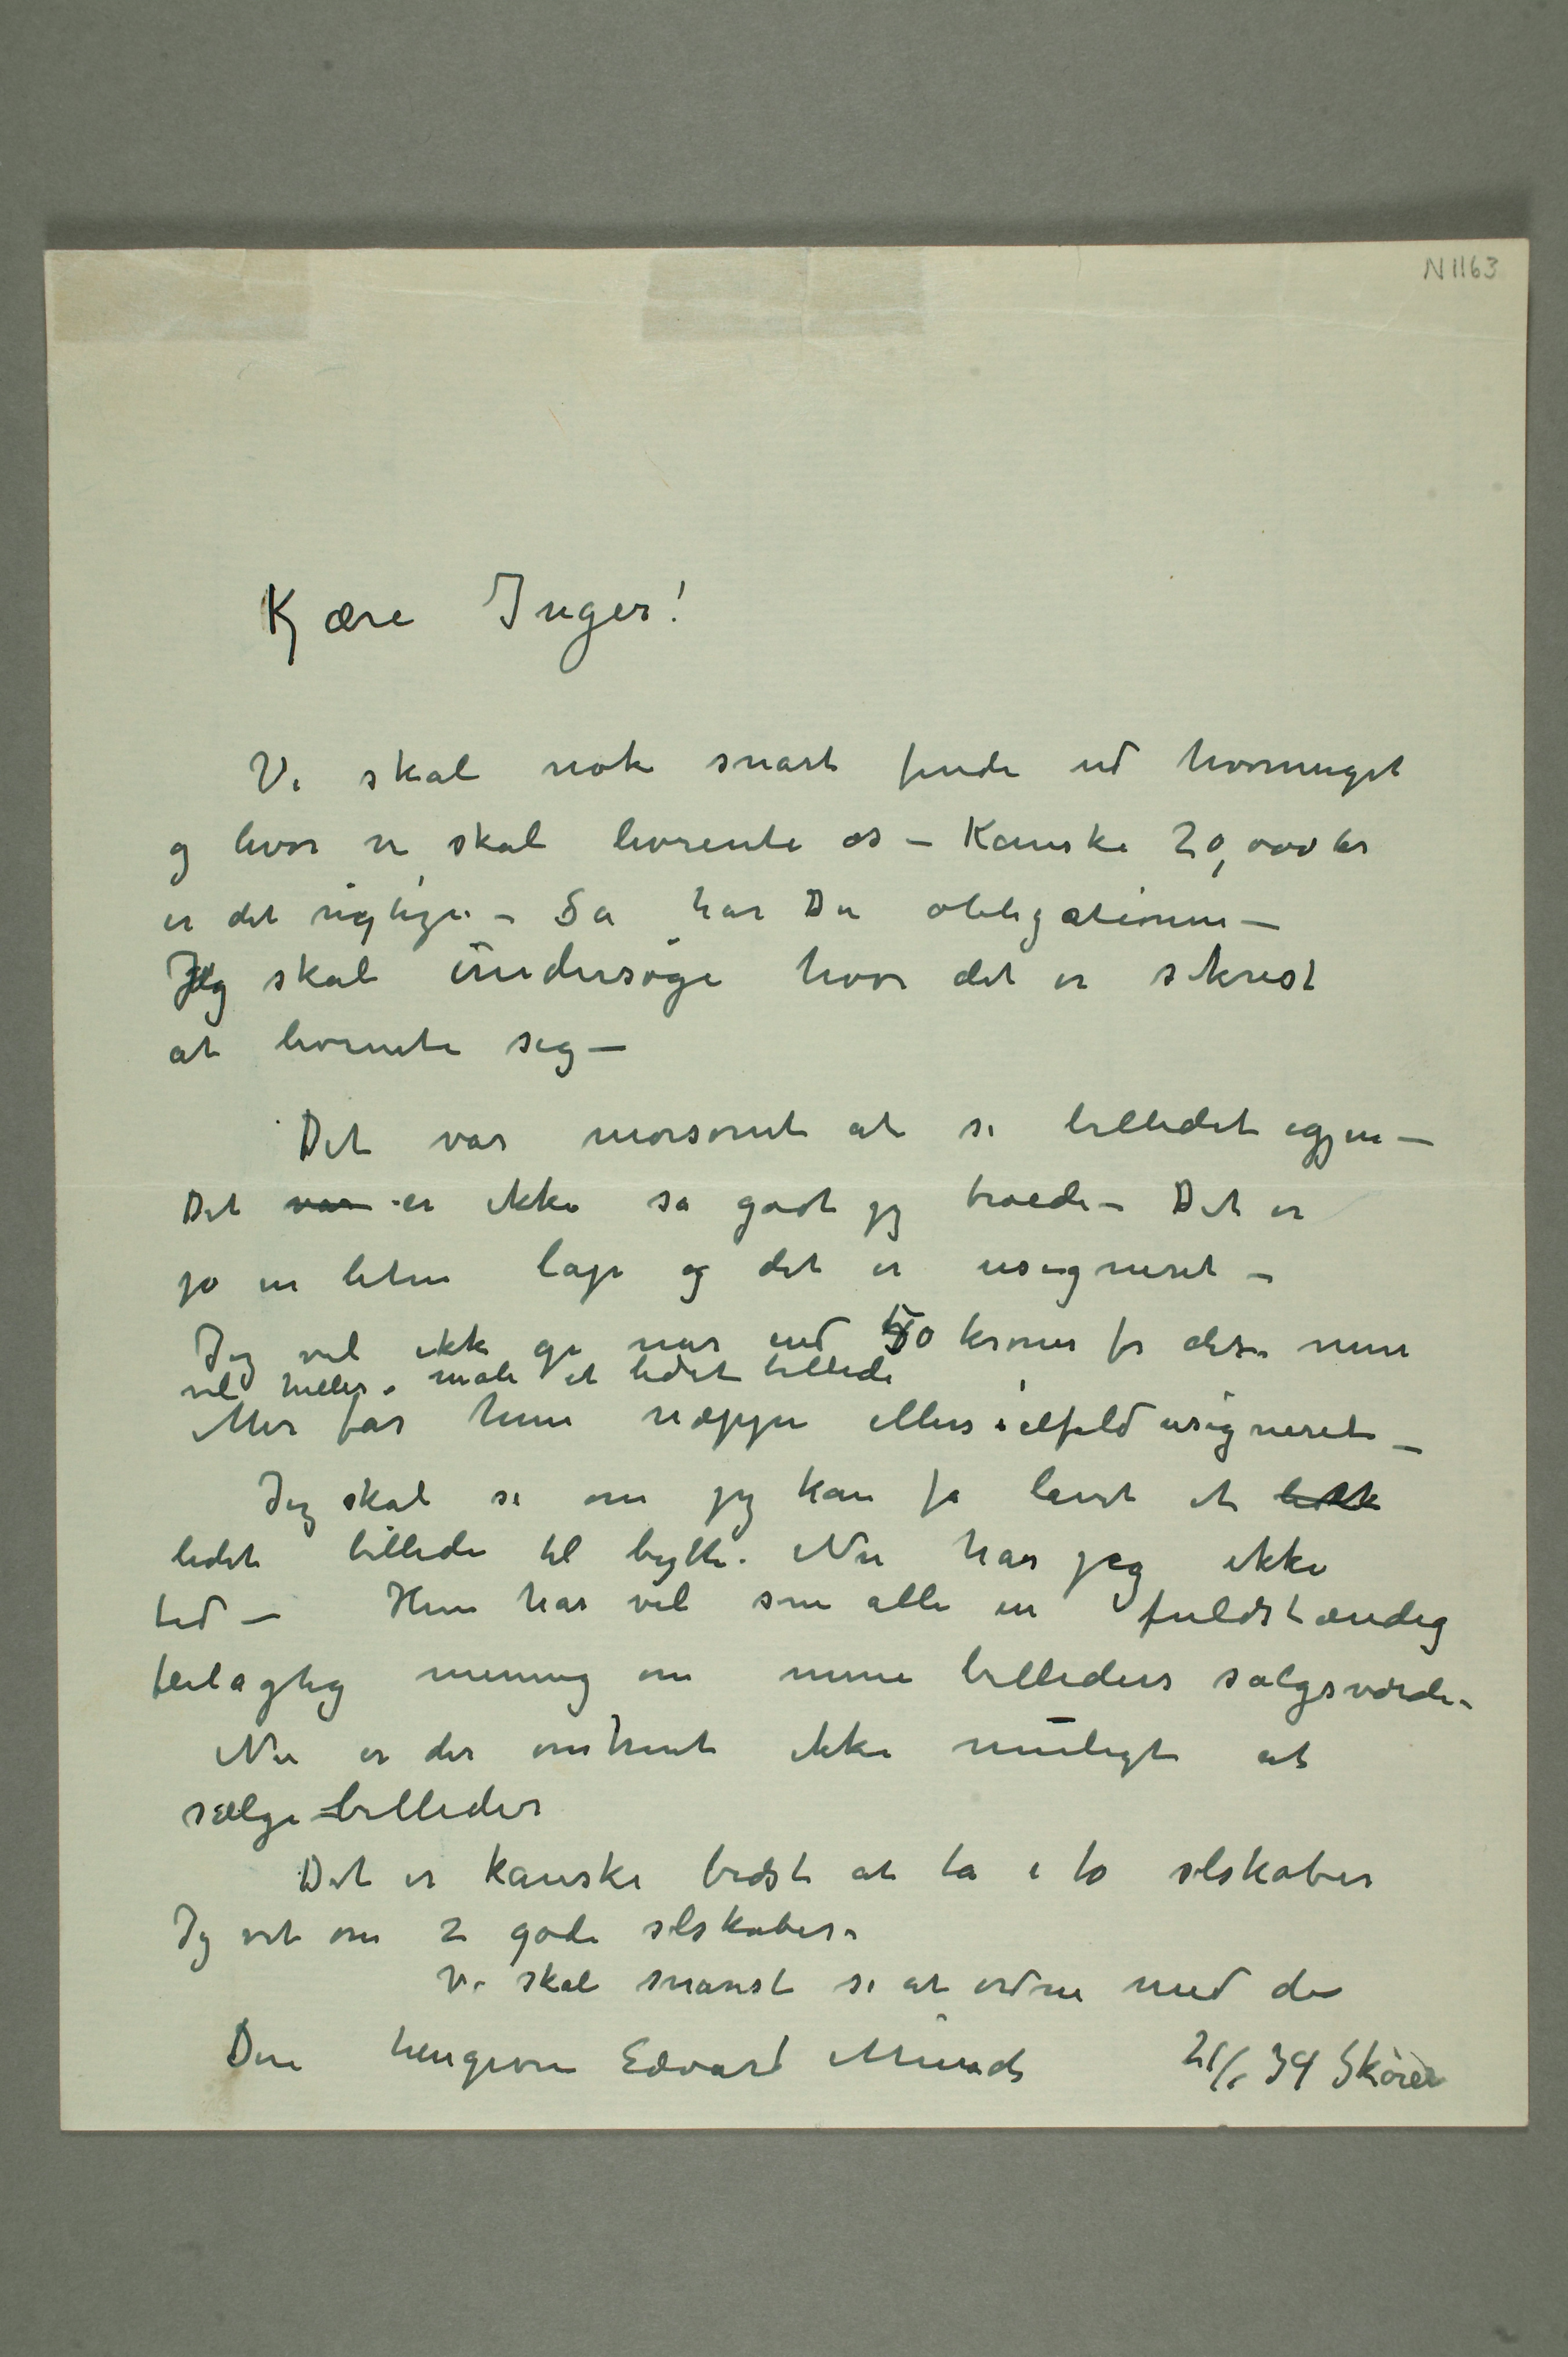 N 1163
Kjære Inger!
Vi skal nok snart finde ud hvormeget
og hvor vi skal livrente os – Kanske 20,000 kr
er det rigtige – Så har Du obligationer –
Jeg skal undersøge hvor det er sikrest
at livrente sig –
Det var morsomt at se billedet igjen –
Det var er ikke så godt jeg troede – Det er
jo en liten lap og det er usigneret –
Jeg vil ikke gi mer end 50 kroner for det
vil heller male et lidet billede
Mer får hun neppe ellers ialfald usigneret –
Jeg skal se om jeg kan få lavet et
lidet billede til bytte. Nu har jeg ikke
tid – Hun har vel som alle en fuldstændig
feilagtig mening om mine billeders salgsværdi –
Nu er det omtrent ikke muligt at
sælge billeder
Det er kanske bedst at ta i to selskaber
Jeg vet om 2 gode selskaber.
Vi skal snarest se at ordne med det
Din hengivne Edvard Munch 21/1 39 Skøien